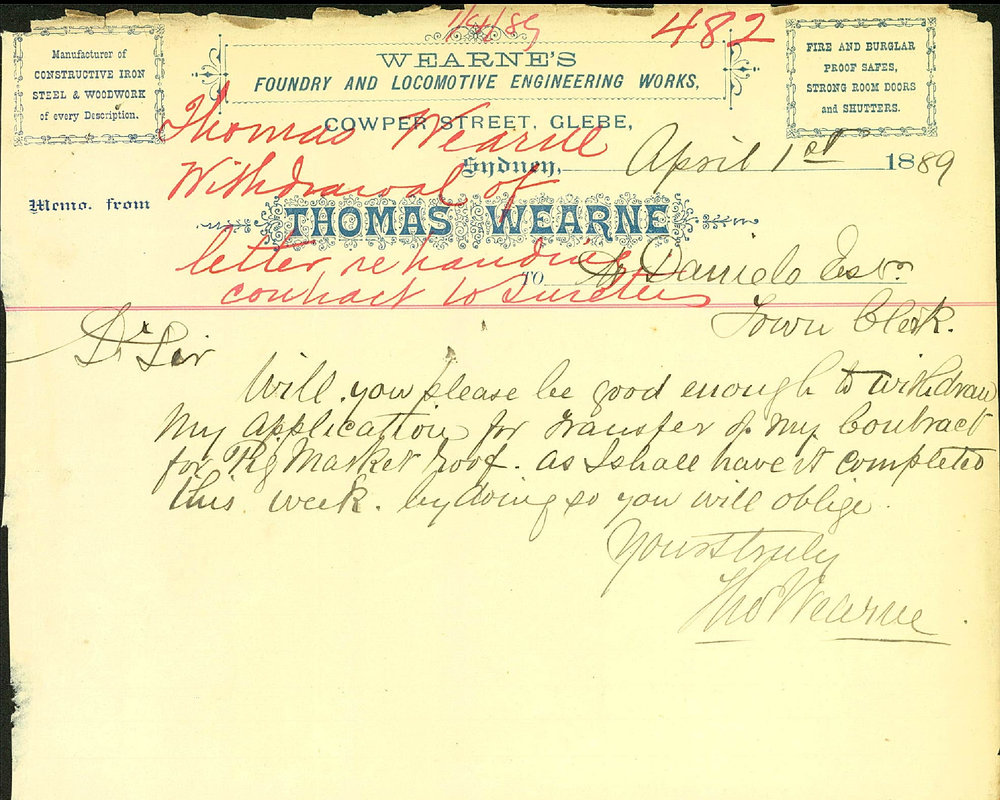 1/4/89
482
Manufacturer of
CONSTRUCTIVE IRON
STEEL & WOODWORK
of every Description.
WEARNE'S
FOUNDRY AND LOCOMOTIVE ENGINEERING WORKS,
COWPER STREET, GLEBE,
FIRE AND BURGLAR
PROOF SAFES,
STRONG ROOM DOORS
and SHUTTERS.
Thomas Wearne
Withdrawal of
letter re handing
contract to Sureties
Sydney, April 1st 1889
Memo. from
THOMAS WEARNE
TO Daniels Esqr
Town Clerk.
Dr Sir
Will you please be good enough to withdraw
My Application for Transfer of My Contract
for Pig Market Roof. as I shall have it completed
this week. by doing so you will oblige.
Yours truly
Tho Wearne